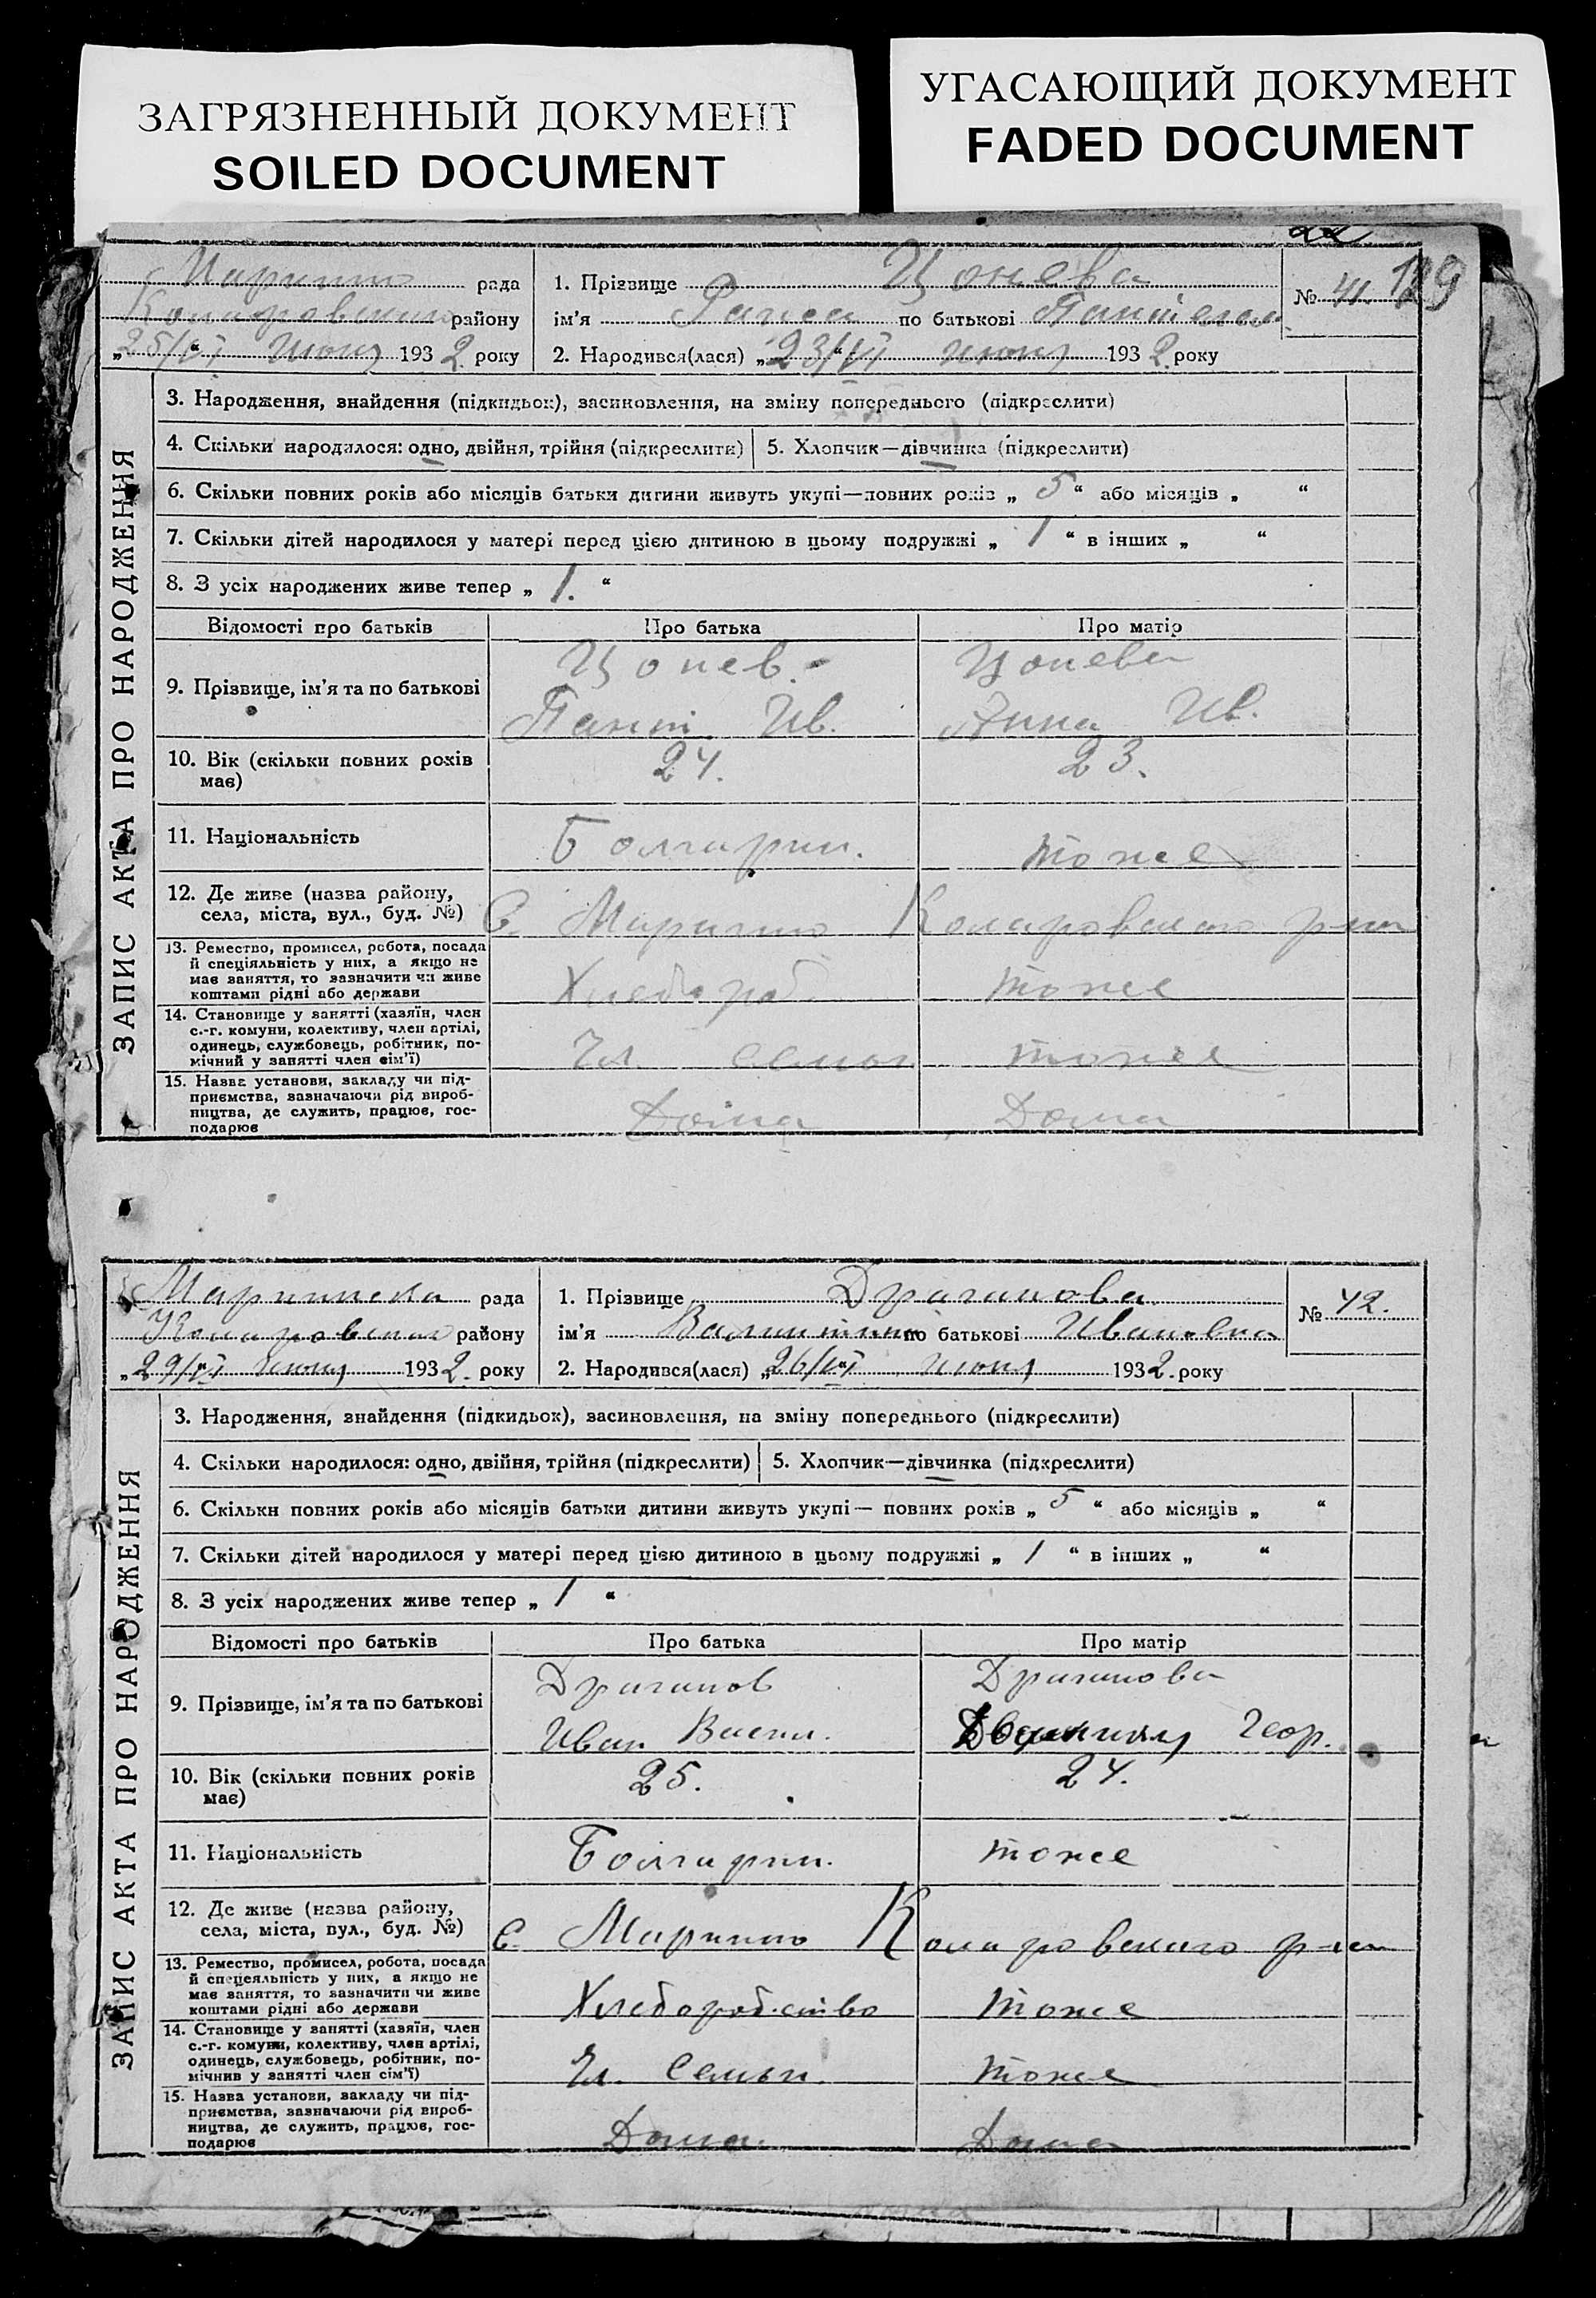 ЗАГРЯЗНЕННЫЙ ДОКУМЕНТ
SOILED DOCUMENT
УГАСАЮЩИЙ ДОКУМЕНТ
FADED DOCUMENT
22
129
ЗАПИС АКТА ПРО НАРОДЖЕННЯ
Марьино рада
Комаровского району
„25/VI“ июня 1932. року
1. Прізвище Цонева
ім’я Раиса по батькові Пантелем
2. Народився(лася) „23/VI“ июня 1932. року
№ 41.
3. Народження, знайдення (підкидьок), засиновлення, на зміну попереднього (підкреслити)
4. Скільки народилося: одно, двійня, трійня (підкреслити) 5. Хлопчик—дівчинка (підкреслити)
6. Скільки повних років або місяців батьки дитини живуть укупі—повних років „ 5 “ або місяців „ “
7. Скільки дітей народилося у матері перед цією дитиною в цьому подружжі „ 1 “ в інших „ “
8. З усіх народжених живе тепер „ 1. “
Відомості про батьків Про батька Про матір
9. Прізвище, ім’я та по батькові Цонев. Цонева
Пант. Ив. Анна Ив.
10. Вік (скільки повних років має) 24. 23.
11. Національність Болгарин. тоже
12. Де живе (назва району, села, міста, вул., буд. №) С. Марьино Комаровского р-на
13. Ремество, промисел, робота, посада й спеціяльність у них, а якщо не має заняття, то зазначити чи живе коштами рідні або держави Хлебороб. тоже
14. Становище у занятті (хазяїн, член с.-г. комуни, колективу, член артілі, одинець, службовець, робітник, помічний у занятті член сім’ї) Чл. семьи тоже
15. Назва установи, закладу чи підприємства, зазначаючи рід виробництва, де служить, працює, господарює Дома Дома
ЗАПИС АКТА ПРО НАРОДЖЕННЯ
Марьинска рада
Комаровского району
„29/VI“ июня 1932. року
1. Прізвище Драганова
ім’я Валентина по батькові Ивановна
2. Народився(лася) „26/VI“ июня 1932. року
№ 42.
3. Народження, знайдення (підкидьок), засиновлення, на зміну попереднього (підкреслити)
4. Скільки народилося: одно, двійня, трійня (підкреслити) 5. Хлопчик—дівчинка (підкреслити)
6. Скільки повних років або місяців батьки дитини живуть укупі— повних років „ 5 “ або місяців „ “
7. Скільки дітей народилося у матері перед цією дитиною в цьому подружжі „ 1 “ в інших „ “
8. З усіх народжених живе тепер „ 1 “
Відомості про батьків Про батька Про матір
9. Прізвище, ім’я та по батькові Драганов Драганова
Иван Васил. Геор.
10. Вік (скільки повних років має) 25. 24.
11. Національність Болгарин. тоже
12. Де живе (назва району, села, міста, вул., буд. №) С. Марьино Комаровского р-на
13. Ремество, промисел, робота, посада й спецеяльність у них, а якщо не має заняття, то зазначити чи живе коштами рідні або держави Хлеборобство тоже
14. Становище у занятті (хазяїн, член с.-г. комуни, колективу, член артілі, одинець, службовець, робітник, помічнив у занятті член сім’ї) Чл. Семьи. тоже
15. Назва установи, закладу чи підприємства, зазначаючи рід виробництва, де служить, працює, господарює Дома. Дома